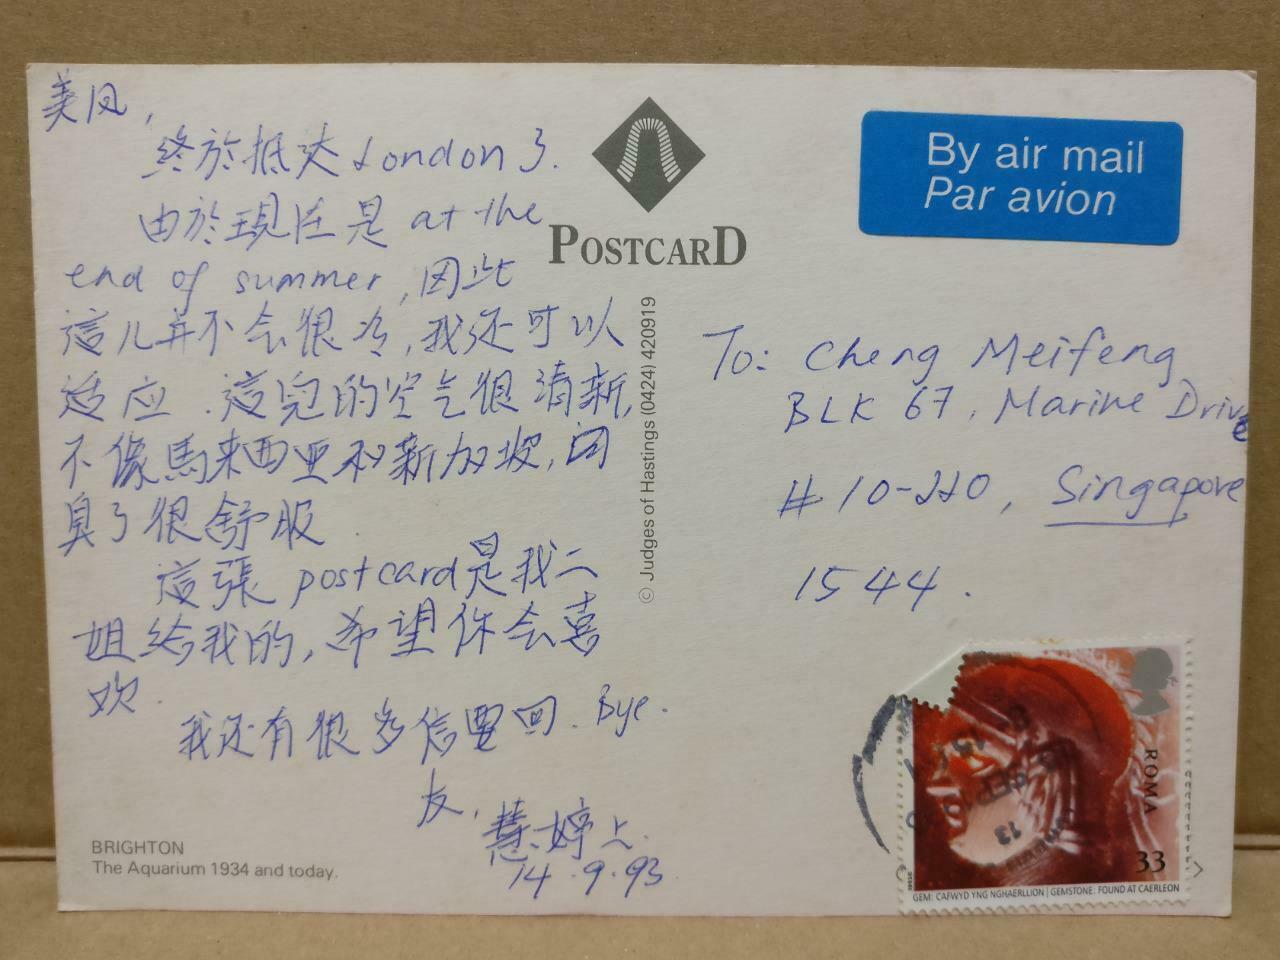 美凤,
终於抵达 London 了.
由於現在是 at the
end of summer, 因此
這儿并不会很冷, 我还可以
适应. 這儿的空气很清新,
不像馬来西亚和新加坡, 闷
臭了很舒服.
這張 postcard 是我二
姐给我的, 希望你会喜
欢.
我还有很多信要回. Bye.
友,
慧婷上.
14.9.93
BRIGHTON
The Aquarium 1934 and today.
POSTCARD
© Judges of Hastings (0424) 420919
By air mail
Par avion
To: Cheng Meifeng
BLK 67, Marine Drive
#10-220, Singapore
1544.
ROMA
33
GEM: CAFWYD YNG NGHAERLLION | GEMSTONE: FOUND AT CAERLEON